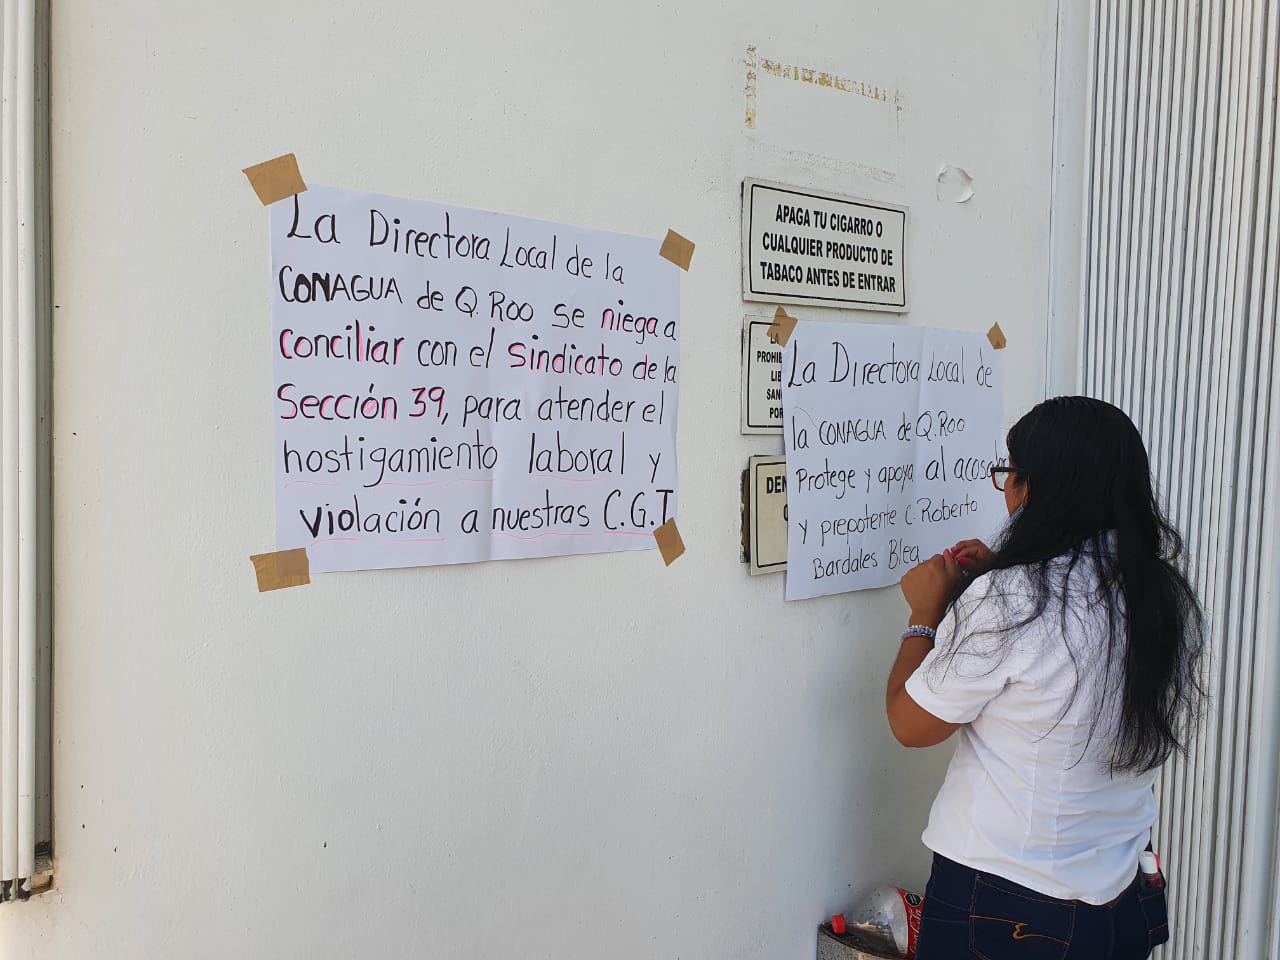 La Directora Local de la
CONAGUA de Q. Roo se niega a
conciliar con el sindicato de la
Sección 39, para atender el
hostigamiento laboral y
violación a nuestras C.G.T
APAGA TU CIGARRO O
CUALQUIER PRODUCTO DE
TABACO ANTES DE ENTRAR
LA
PROHIB
LIB
SAN
POR
DEN
La Directora Local de
la CONAGUA de Q. Roo
Protege y apoya al acosa
y prepotente C. Roberto
Bardales Blea